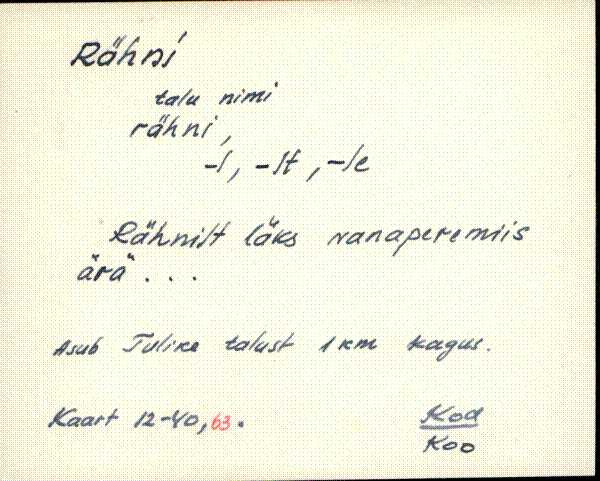 Rähni
talu nimi
rähni,
-l, -lt, -le
Rähnilt läks vanaperemiis
ärä ...
Asub Tulike talust 1 km kagus.
Kaart 12-40, 63.
Kod
Koo